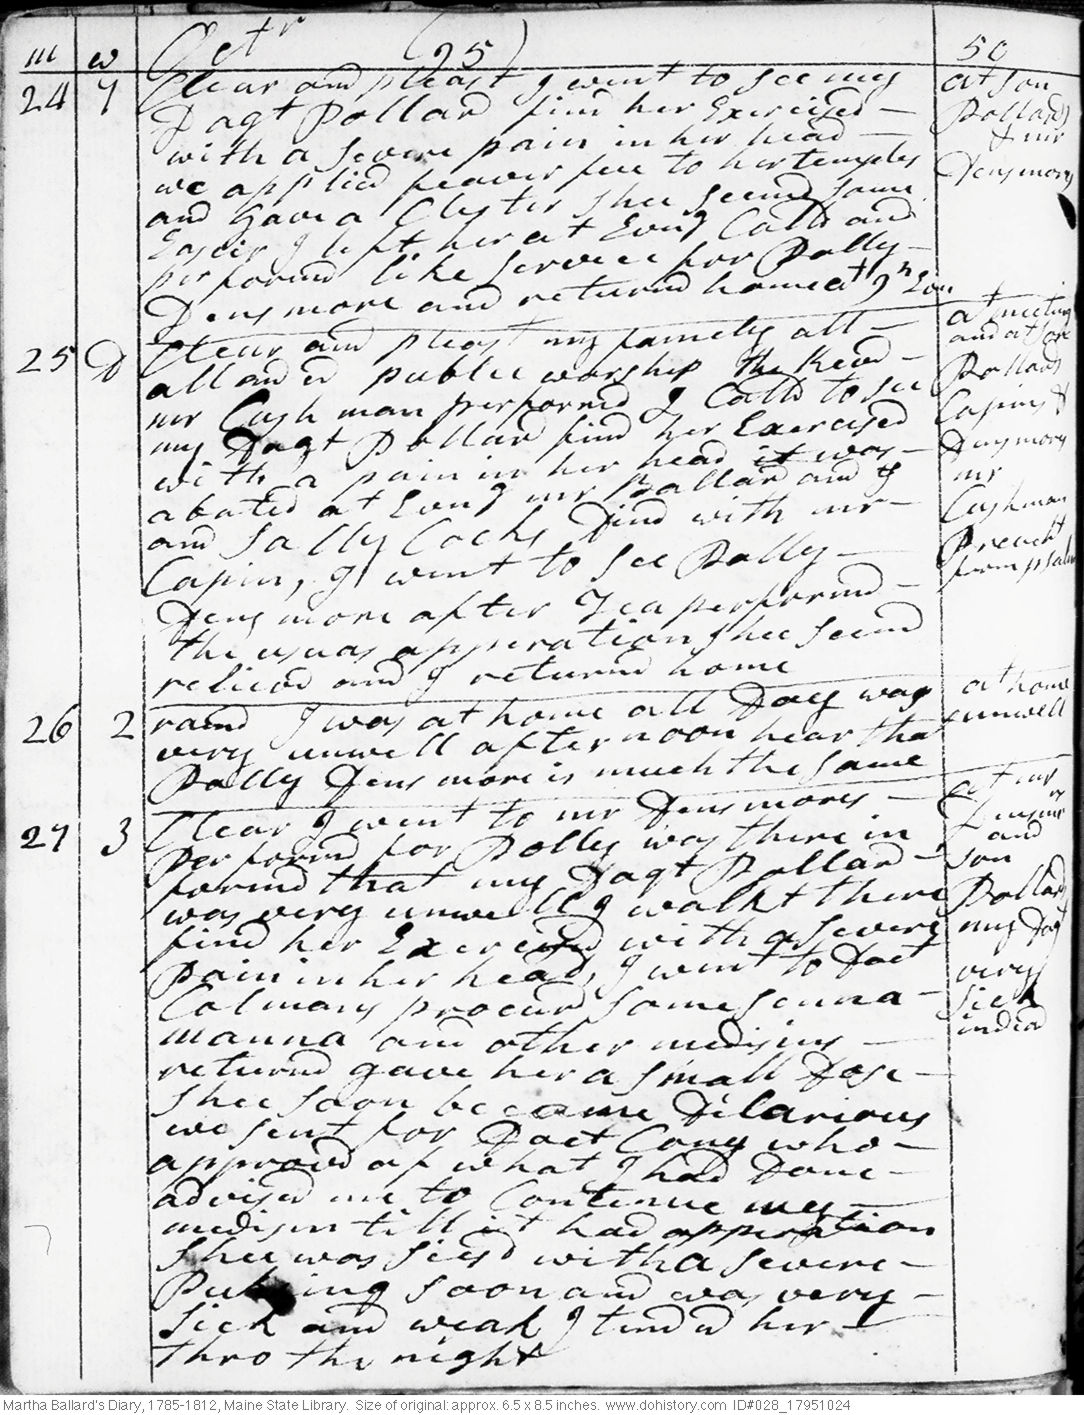 m w Octr (25) 50
24 7 Clear and pleast I went to see my
Dagt Pollard find her Exercised
with a severe pain in her head
we applied feaver few to her temples
and Gave a Clyster shee seemd some
Easeir I left her at Evng Calld and
performd like service for Polly
Densmore and returnd home at 9h Evn
at son
Pollards
& mr
Densmors
25 D Clear and pleast my family all
attended public worship the Revd
mr Cushman performd I Calld to see
my Dagt Pollard find her Exercised
with a pain in her head it was
abated at Evng mr Ballard and I
and Sally Cocks Dind with mr
Capin, I went to see Polly
Densmore after Tea performd
the usual opperation shee seemd
relievd and I returnd home
at meeting
and at son
Pollards
Capins &
Densmors
mr
Cushman
Preacht
from psalm
26 2 raind I was at home all Day was
very unwell afternoon hear that
Polly Densmore is much the same
at home
unwell
27 3 Clear I went to mr Densmores
performd for Polly was there in
formd that my Dagt Pollard
was very unwell I walkt there
find her Exercised with a severe
pain in her head, I went to Doct
Colmans procurd some senna
manna and other medisins
returnd gave her a small Dose
shee soon became Dilarious
we sent for Doct Cony who
approvd of what I had Done
advised me to Continue my
medisin till it had opperation
shee was siesd with a severe
Puking soon and was very
Sick and weak I tended her
thro the night
at mr
Densmors
and
son
Pollards
my Dagt
very
sick
indead
Martha Ballard's Diary, 1785-1812, Maine State Library. Size of original: approx. 6.5 x 8.5 inches. www.dohistory.com ID#028_17951024